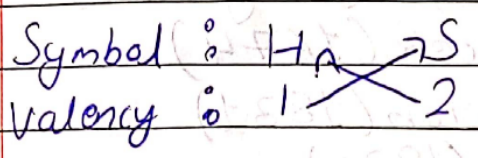 Symbol : H S
Valency : 1 2